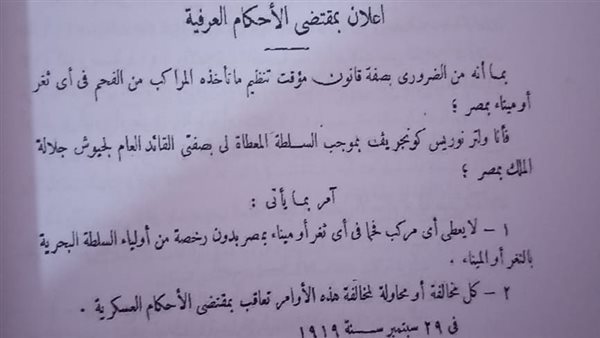 اعلان بمقتضى الأحكام العرفية
بما أنه من الضرورى بصفة قانون مؤقت تنظيم ما تأخذه المراكب من الفحم فى أى ثغر
أو ميناء بمصر ؛
فأنا ولتر نوريس كونجريف بموجب السلطة المعطاة لى بصفتى القائد العام لجيوش جلالة
الملك بمصر ؛
آمر بما يأتى :
١ - لا يعطى أى مركب فحما فى أى ثغر أو ميناء بمصر بدون رخصة من أولياء السلطة البحرية
بالثغر أو الميناء .
٢ - كل مخالفة أو محاولة لمخالفة هذه الأوامر تعاقب بمقتضى الأحكام العسكرية .
فى ٢٩ سبتمبر سنة ١٩١٩